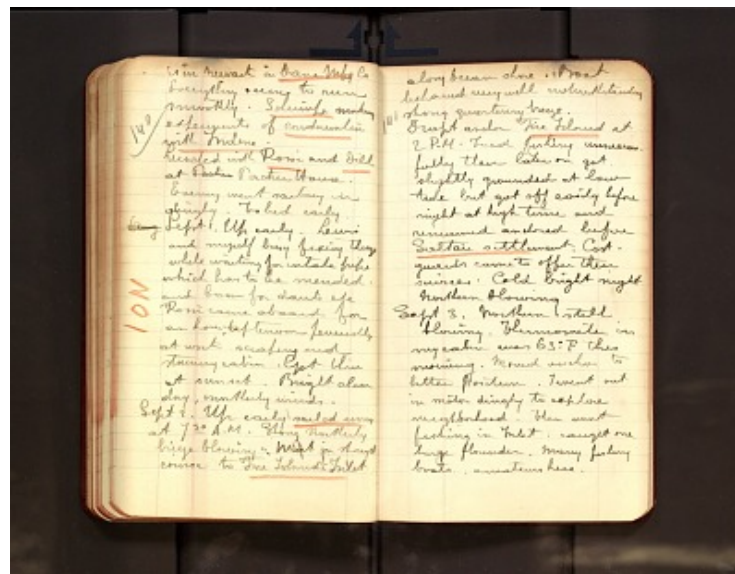 is in Newark in Dana Mfg Co
Everything seems to run
smoothly. making
experiments of condensation
with Indene.
140
with Rossi and Dill
at Pactin House.
Evening went in
dinghy. To bed early.
Sept 1. Up early. Lewis
and myself busy fixing things
while waiting for intake pipe
which has to be mended.
and
ION
Rossi came aboard for
an hour, afternoon feverishly
at work scraping and
cabin. Cool
at sunset. Bright clear
day, northerly winds.
Sept 2. Up early sailed away
at 7 30 A.M. Strong northerly
breeze blowing. Went in straight
course to Fire Island Inlet
along Ocean shore. Boat
behaved very well notwithstanding
strong quartering breeze.
141
Dropt anchor Fire Island at
2 P.M. Tried fishing unsuccess-
fully then later on got
slightly grounded at low
tide but got off easily before
night at high time and
remained anchored before
settlement. Cost-
guards came to offer their
services. Cold bright night
Northern blowing
Sept 3. Northern still
blowing. Thermometer in
my cabin was 63° F this
morning. Moved anchor to
better position. I went out
in motor dinghy to explore
neighborhood. Then went
fishing in Inlet. caught one
large flounder. Many fishing
boats. amateurs here.